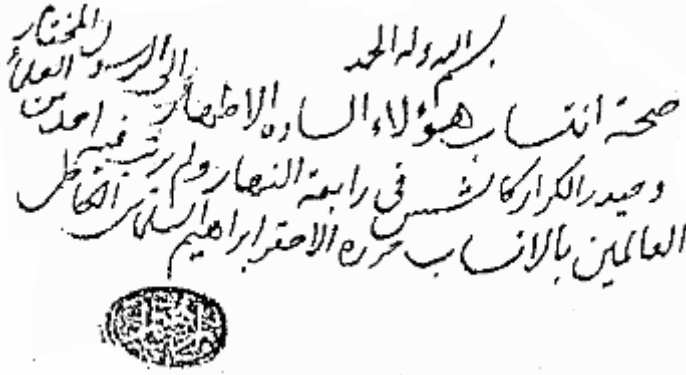 بسم الله وله الحمد
صحة انتساب هؤلاء الساده الاطهار الى الرسول المختار
وحيدر الكرار كالشمس في رابعة النهار ولم يرتب فيه احد من العلماء
العالمين بالانساب حرره الاحقر ابراهيم السلماسي الكاظمي